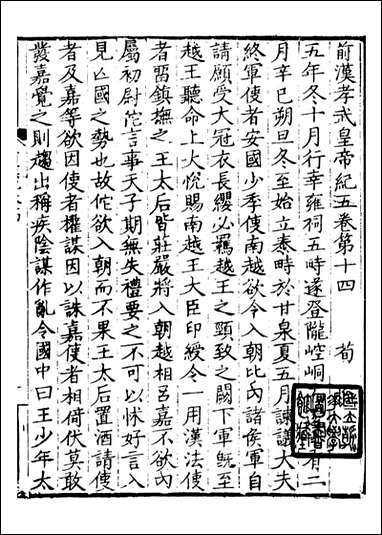 前漢孝武皇帝紀五卷第十四 荀
五年冬十月行幸雍祠五畤遂登隴崆峒 有二
月辛巳朔旦冬至始立泰畤於甘泉夏五月諫議大夫
終軍使者安國少季使南越欲令入朝比内諸侯軍自
請願受大冠衣長纓必羈越王之頸致之闕下軍既至
越王聽命上大悅賜南越王大臣印綬令一用漢法使
者留鎮撫之王太后皆莊嚴將入朝越相呂嘉不欲内
屬初尉佗言事天子期無失禮要之不可以怵好言入
見亡國之勢也故佗欲入朝而不果王太后置酒請使
者及嘉等欲因使者權謀因以誅嘉使者相倚伏莫敢
發嘉覺之則趨出稱疾陰謀作亂令國中曰王少年太